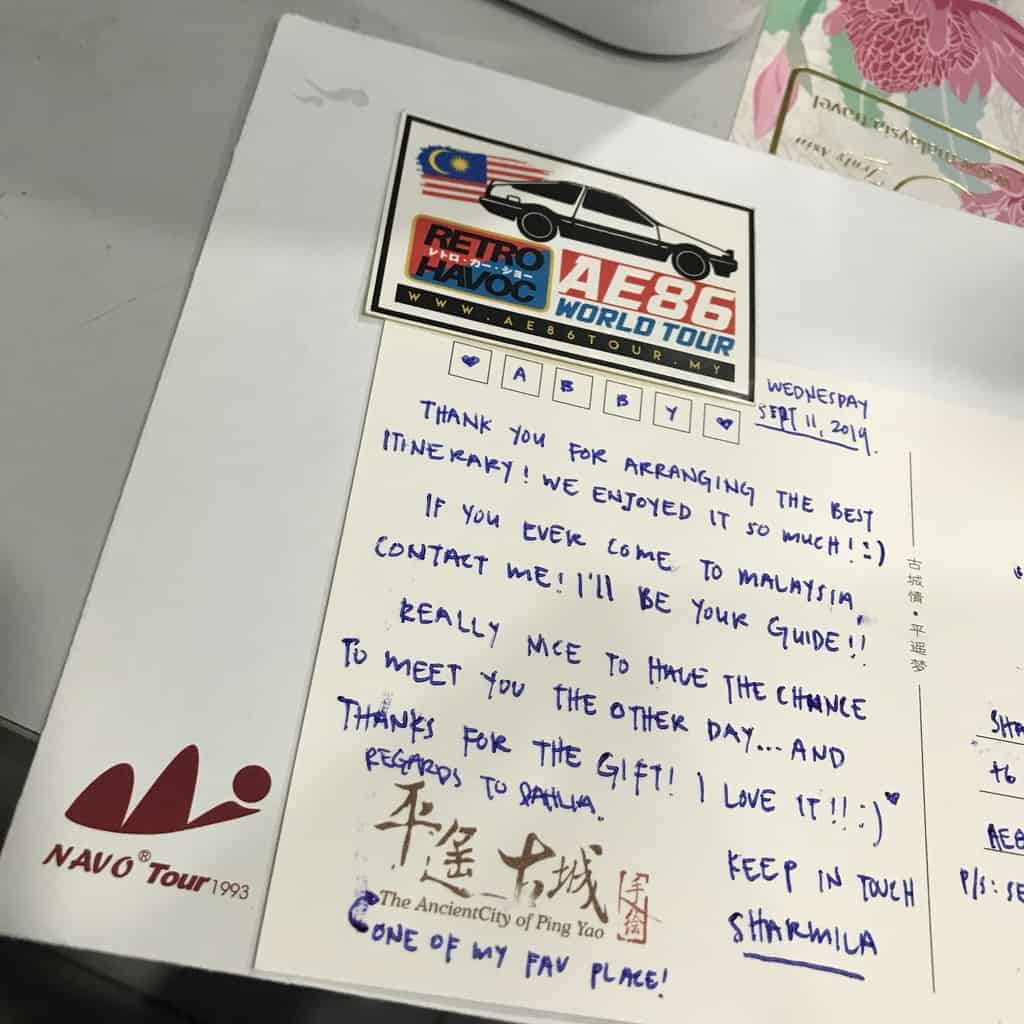 Truly Asia
malaysia travel
RETRO
レトロ・カー・ショー
HAVOC
AE86
WORLD TOUR
WWW.AE86TOUR.MY
♥ A B B Y ♥
WEDNESDAY
SEPT 11, 2019.
THANK YOU FOR ARRANGING THE BEST
ITINERARY! WE ENJOYED IT SO MUCH! :)
IF YOU EVER COME TO MALAYSIA,
CONTACT ME! I'll BE YOUR GUIDE!!
REALLY NICE TO HAVE THE CHANCE
TO MEET YOU THE OTHER DAY... AND
THANKS FOR THE GIFT! I LOVE IT!! :) ♥
REGARDS TO DAHLIA.
平遥古城
手绘
The AncientCity of Ping Yao
ONE OF MY FAV PLACE!
KEEP IN TOUCH
SHARMILA
古城情·平遥梦
SHA
+6
AE8
P/S: SE
NAVO® Tour 1993